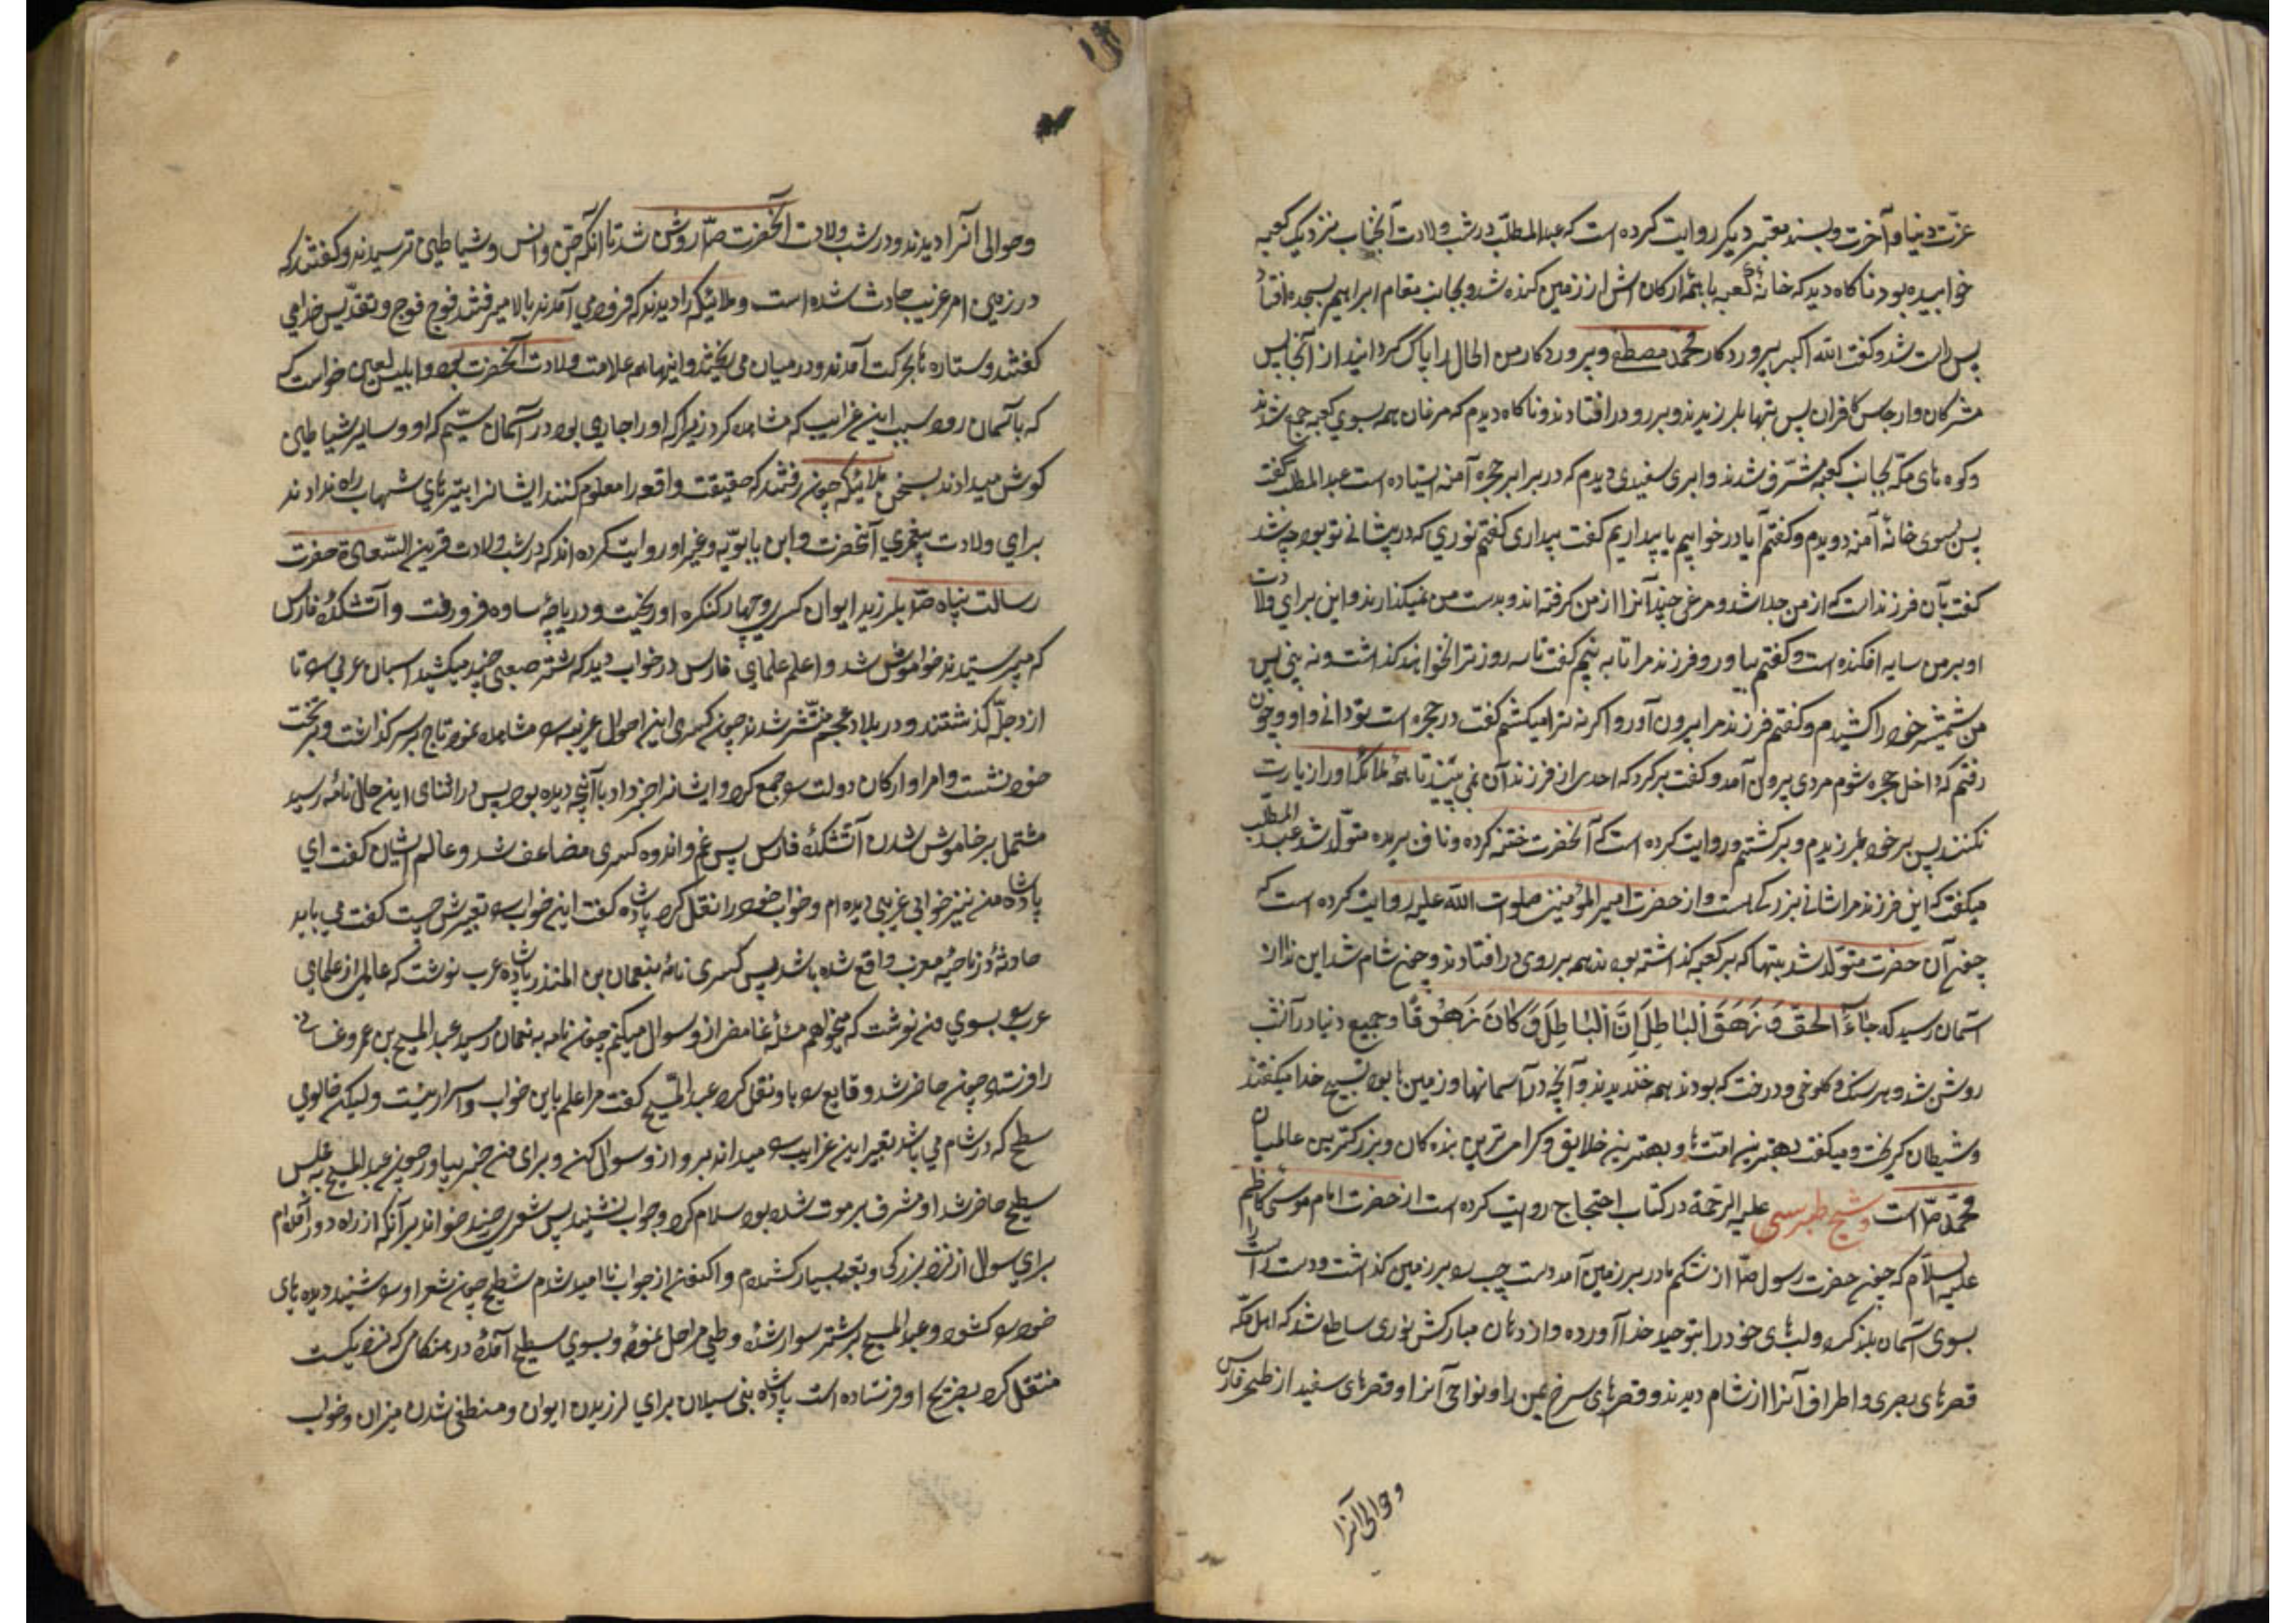 عزت دنیا و آخرت و بسند معتبر دیکر روایت کرده است که عبدالمطلب در شب ولادت آنجناب نزدیک کعبه
خوابیده بود ناکاه دید که خانهٔ کعبه با همه ارکانش از زمین کنده شد و بجانب مقام ابراهیم بسجده افتاد
پس راست شد و کفت الله اکبر پروردکار محمد مصطفی و پروردکار من الحال مرا پاک کردانید از انجاس
مشرکان و ارجاس کافران پس بتها بلرزیدند و بر رو در افتادند و ناکاه دیدم که مرغان همه بسوی کعبه جمع شدند
و کوه های مکه بجانب کعبه مشرف شدند و ابری سفیدی دیدم که در برابر حجره آمنه ایستاده است عبدالمطلب کفت
پس بسوی خانهٔ آمنه دویدم و کفتم آیا در خوابیم یا بیداریم کفت بیداری کفتم نوری که در پیشانی تو بود چه شد
کفت بآن فرزندات که از من جدا شد و مرغی چند آنرا از من کرفته اند و بدست من نمیکذارند و این برای ولادت
او بر من سایه افکنده است و کفتم بیاور و فرزند مرا تا به بینم کفت تا سه روز ترا نخواهند کذاشت و نه بینی پس
من شمشیر خود را کشیدم و کفتم فرزند مرا بیرون آور و اکر نه ترا میکشتم کفت در حجره است تو دانی و او و چون
رفتم که داخل حجره شوم مردی بیرون آمد و کفت برکرد که احدی از فرزند آن نمی بیند تا همهٔ ملائکه اورا زیارت
نکنند پس بر خود بلرزیدم و برکشتم و روایت کرده است که آنحضرت ختنه کرده و ناف بریده متولد شد عبدالمطلب
میکفت که این فرزند مرا شانی بزرک است و از حضرت امیر المؤمنین صلوات الله علیه روایت کرده است که
چون آن حضرت متولد شد بتها که بر کعبه کذاشته بودند همه بر روی در افتادند و چون شام شد این ندا از
آسمان رسید که جَاءَ الحَق وَ زَهَقَ البَاطِل اِنَّ البَاطِلَ کَانَ زَهُوقًا و جمیع دنیا در آنشب
روشن شد و هر سنک و کلوخی و درخت که بودند همه خندیدند و آنچه در آسمانها و زمین ها بود تسبیح خدا میکفتند
و شیطان کریخت و میکفت بهترین امتها و بهترین خلایق و کرامی ترین بنده کان و بزرکترین عالمیان
محمد ص است و شیخ طبرسی علیه الرحمة در کتاب احتجاج روایت کرده است از حضرت امام موسی کاظم
علیه السلام که چون حضرت رسول ص از شکم مادر بر زمین آمد دست چپ را بر زمین کذاشت و دست راست را
بسوی آسمان بلند کرد و لبهای خود را بتوحید خدا آورده و از دهان مبارکش نوری ساطع شد که اهل مکه
قصرهای بصری و اطراف آنرا از شام دیدند و قصرهای سرخ یمن را و نواحی آنرا و قصرهای سفید اصطخر فارس
و حوالی آنرا
و حوالی آنرا دیدند و در شب ولادت آنحضرت ص روشن شد تا آنکه جن و انس و شیاطین ترسیدند و کفتند که
در زمین امر غریب حادث شده است و ملائیکه را دیدند که فرود می آمدند و بالا میرفتند فوج فوج و تقدیس خدا می
کفتند و ستاره ها بحرکت آمدند و در میان می ریختند و اینها همه علامت ولادت آنحضرت بود و ابلیس لعین خواست که
که باسمان رود سبب این غرایب که مشاهده کرد زیرا که او را جایی بود در آسمان سیم که او و سایر شیاطین
کوش میدادند بسخن ملائیکه چون رفتند که حقیقت واقعه را معلوم کنند ایشانرا بتیرهای شهاب راه ندادند
برای ولادت پیغمبری آنحضرت و ابن بابویه و غیر او روایت کرده اند که در شب ولادت قرین السعادة حضرت
رسالت پناه ص بلرزید ایوان کسری و چهار کنکره او ریخت و دریاچهٔ ساوه فرو رفت و آتشکدهٔ فارس
که میپرستیدند خواموش شد و اعلم علمای فارس در خواب دید که شتر صعبی چند میکشید اسبان عربی را تا
از دجله کذشتند و در بلاد عجم منتشر شدند چون کسری این احوال غریبه را مشاهده نمود تاج بر سر کذاشت و بر تخت
خود نشست و امرا و ارکان دولت را جمع کرد و ایشانرا خبر داد با آنچه دیده بود پس در اثنای این حال نامه رسید
مشتمل بر خاموش شدن آتشکدهٔ فارس پس غم و اندوه کسری مضاعف شد و عالم ایشان کفت ای
پادشاه من نیز خوابی غریبی دیده ام و خواب خود را نقل کرد پادشاه کفت این خواب را تعبیرش چیست کفت می باید
حادثهٔ در ناحیهٔ مغرب واقع شده باشد پس کسری نامهٔ بنعمان بن المنذر پادشاه عرب نوشت که عالمی از علمای
عرب را بسوی من نوشت که میخواهم مسئله غامض از او سوال میکنم چون نامه به نعمان رسید عبد المسیح بن عمرو غسانی
را فرستاد چون حاضر شد وقایع را باو نقل کرد عبد المسیح کفت مرا علم باین خواب و اسرار نیست و لیکن خالوی
سطح که در شام می باشد تعبیر این غرایب را میداند برو از او سوال کن و برای من خبر بیاور چون عبد المسیح به مجلس
سطیح حاضر شد او مشرف بر موت شده بود سلام کرد و جواب نشنید پس شعری چند خواند بر آنکه از راه دور آمده ام
برای سوال از نزد بزرکی و تعب بسیار کشیدم و اکنون از جواب نا امید شدم سطیح چون شعر او را شنید دیده های
خود را کشود و عبد المسیح بر شتر سوار شده و طی مراحل نموده و بسوی سطیح آمده در هنکامی که نزدیکست
منتقل کرد بضریح او فرستاده است پادشاه بنی سیلان برای لرزیدن ایوان و منطفی شدن میزان و خواب